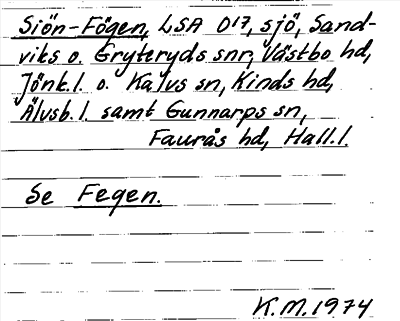 Siön-Fögen, LSA D17, sjö, Sand-
viks o. Gryteryds snr, Västbo hd,
Jönk.l. o. Kalvs sn, Kinds hd,
Älvsb.l. samt Gunnarps sn,
Faurås hd, Hall.l.
Se Fegen.
K.M.1974